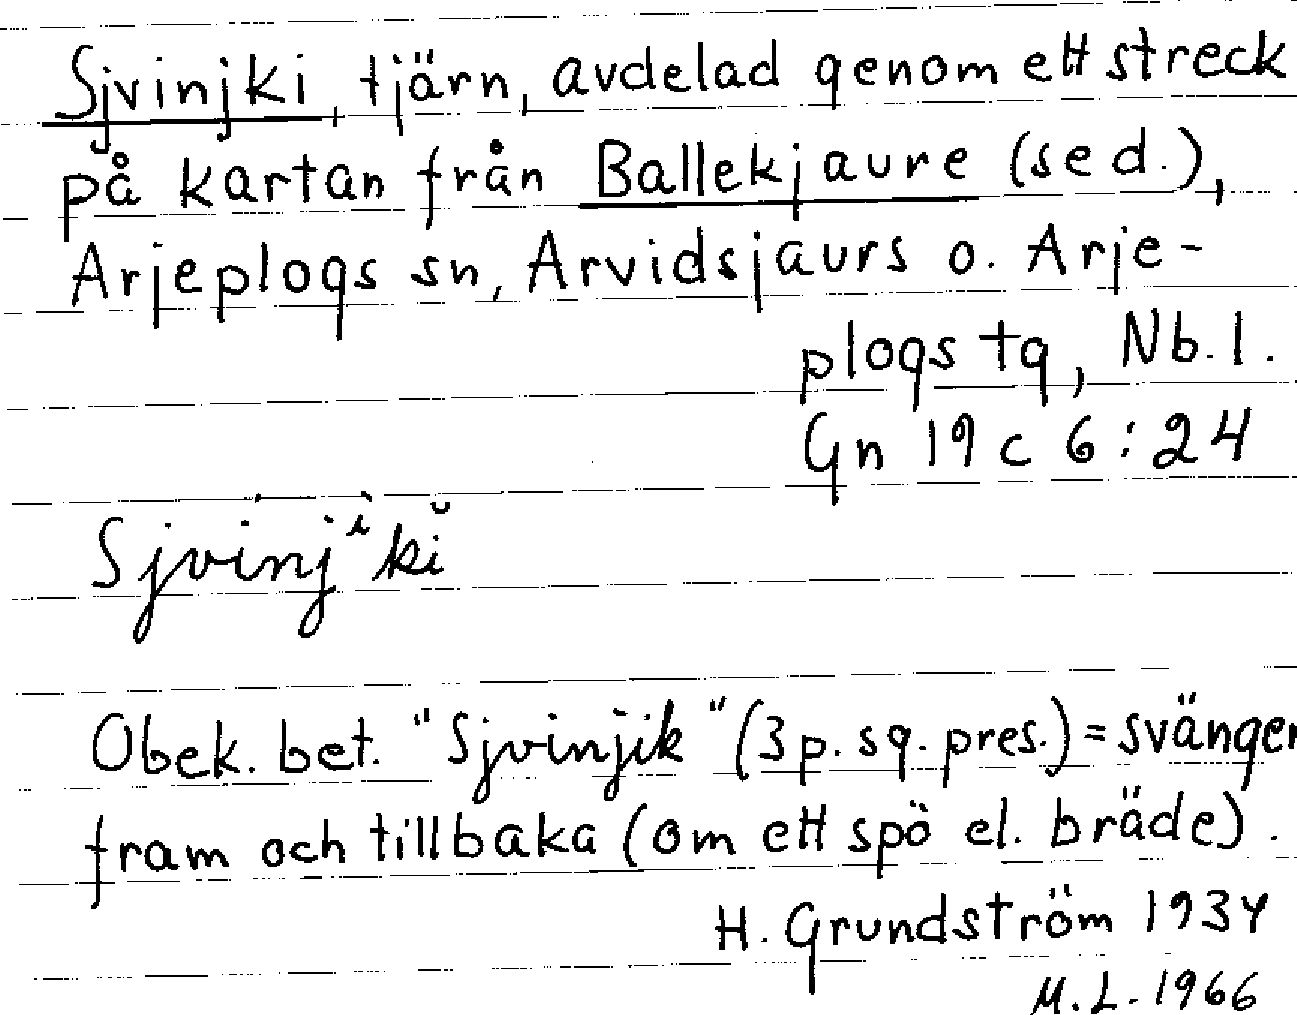 Sjvinjki, tjärn, avdelad genom ett streck
på kartan från Ballekjaure (se d.),
Arjeplogs sn, Arvidsjaurs o. Arje-
plogs tg, Nb. l.
Gn 19 c 6:24
Sjvinjⁱkĭ
Obek. bet. "Sjvinjik" (3 p. sg. pres.) = svänger
fram och tillbaka (om ett spö el. bräde).
H. Grundström 1934
M. L. 1966